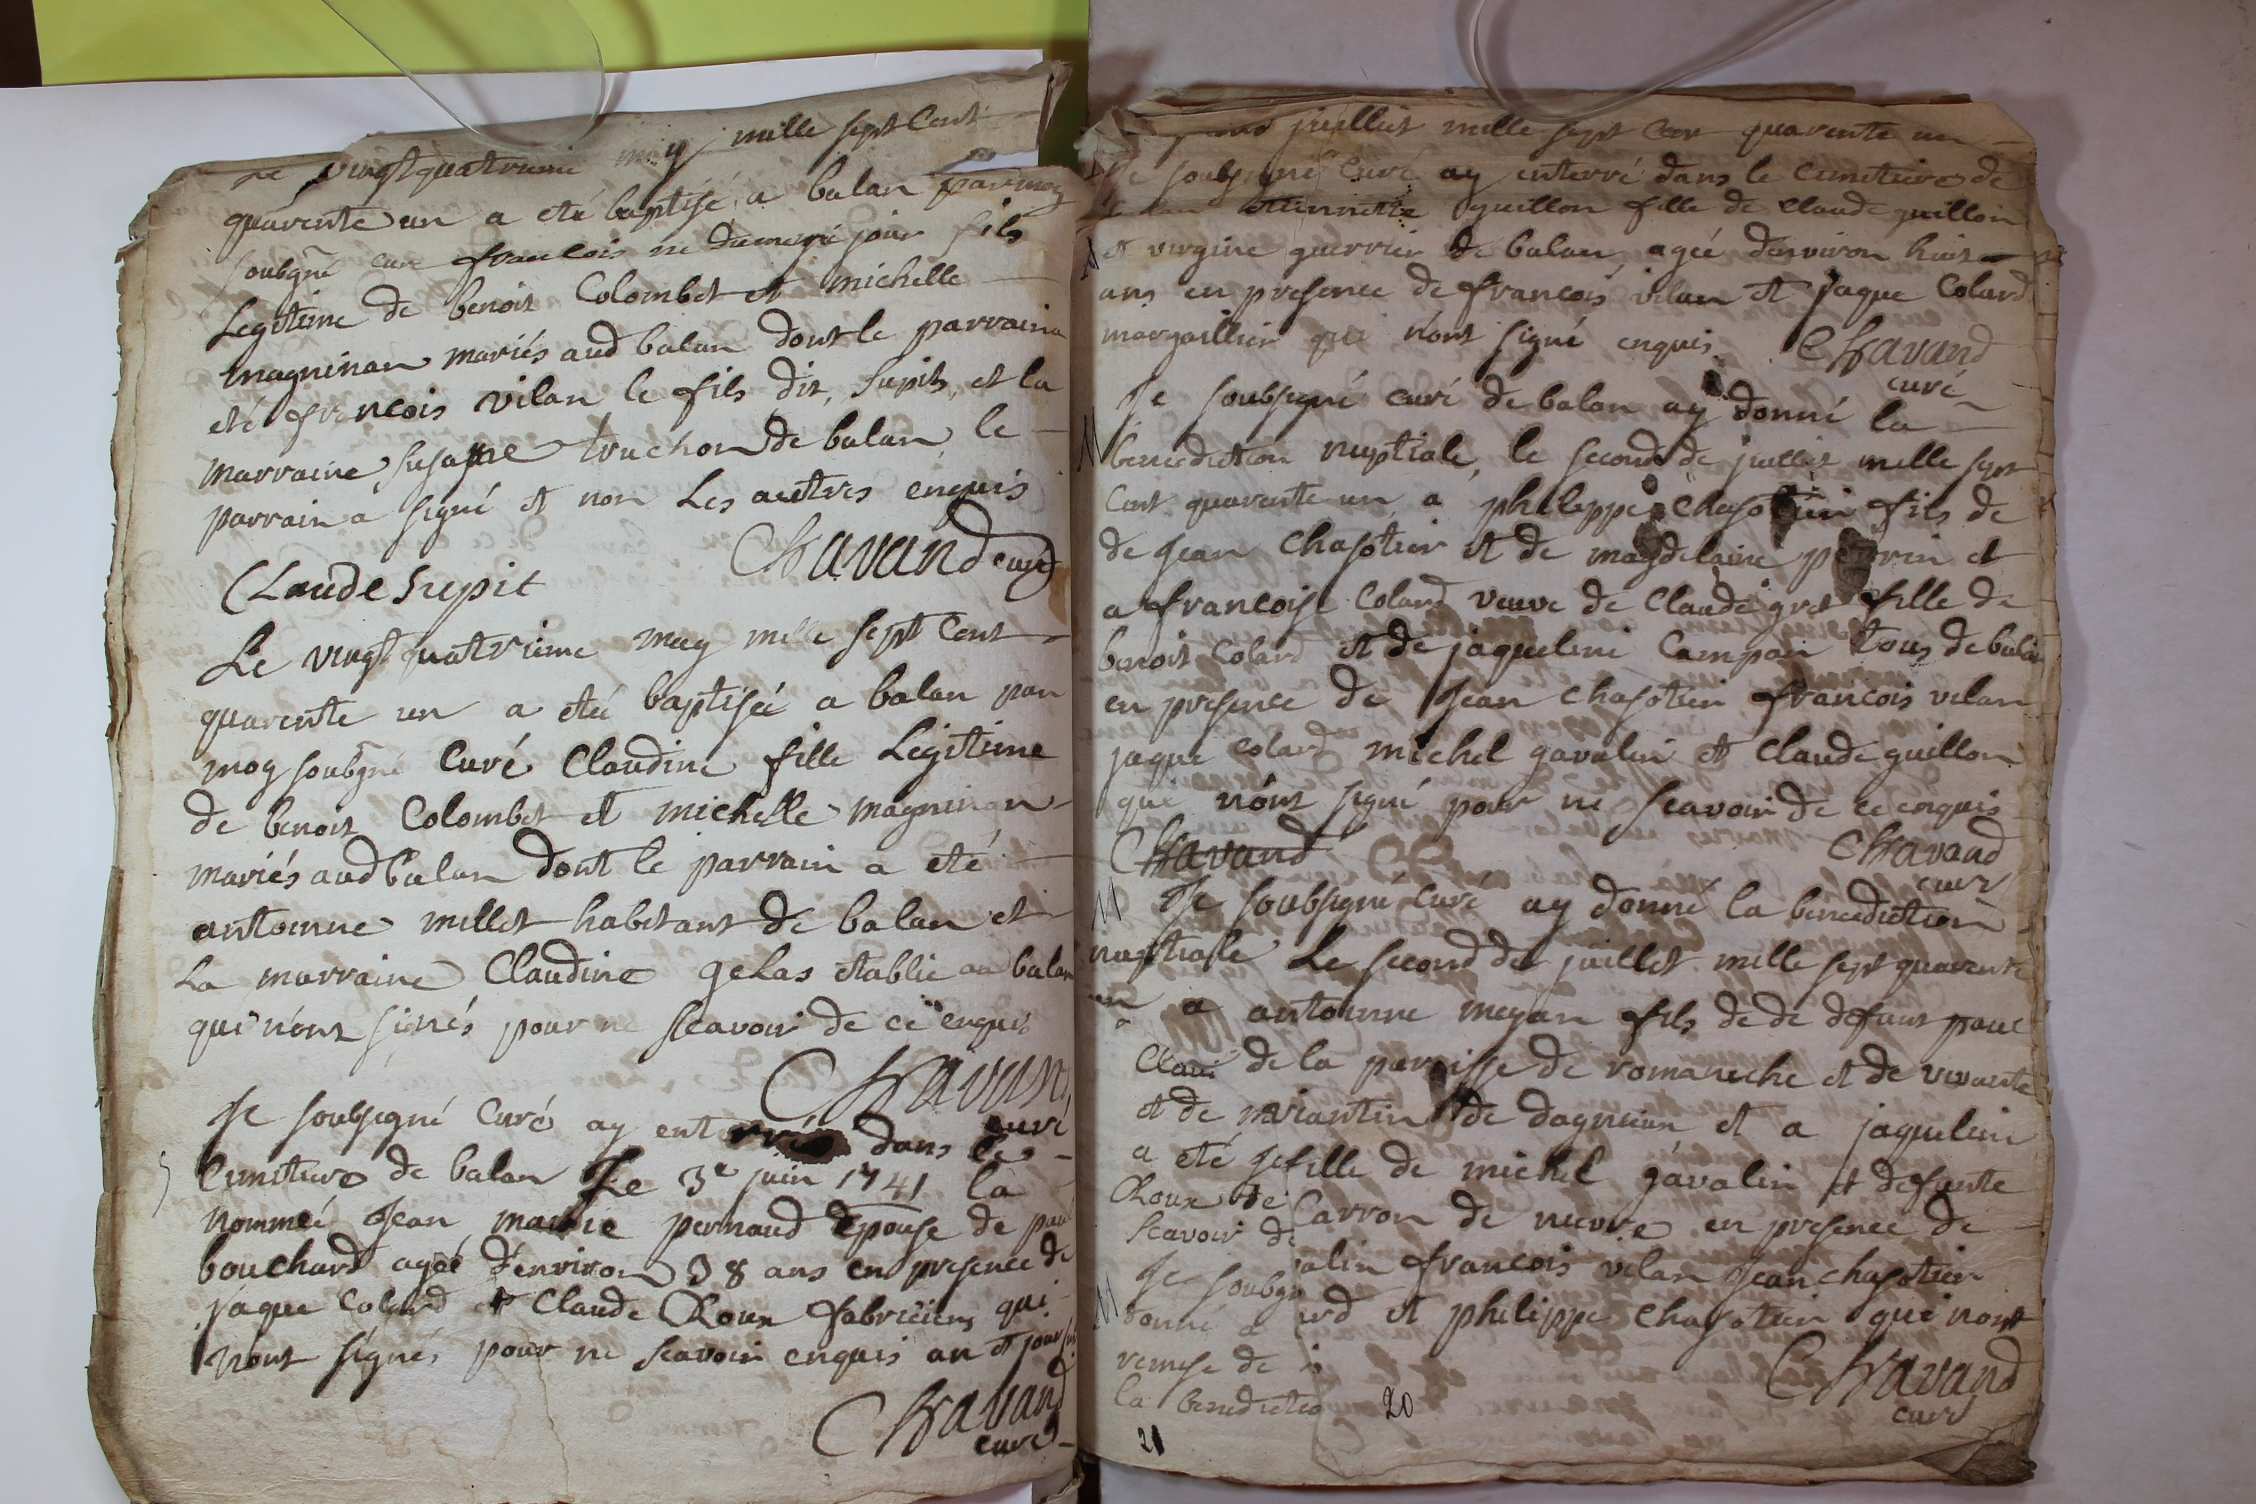 Le vingtquatrieme may mille sept Cent
quarente un a eté baptisé a balan par moy
soubgné curé francois né du meme jour fils
Legitime de benoit Colombet et michelle
magninan mariés aud balan dont le parrain a
eté francois vilan le fils dit, supit, et la
marraine susane truchon de balan, le
parrain a signé et non Les autres enquis
Chavand curé
CLaude supit
Le vingt quatrieme may mille sept Cent
quarente un a eté baptisée a balan par
moy soubgné Curé Claudine fille Legitime
de benoit Colombet et michelle magninan
mariés aud balan dont le parrain a eté
antoinne millet habitant de balan et
La marraine Claudine geLas etablie au balan
qui n'ont signés pour ne scavoir de ce enquis
Chavand
curé
Je soubsigné Curé ay enterré dans le
Cimetiere de balan Le 3e juin 1741 la
nommée Jean marie pernaud Epouse de paul
bouchard agée d'environ 38 ans en presence de
jaque Colard et Claude Roux fabriciens qui
n'ont signés pour ne scavoir enquis an et jour
Chavand
curé
juillet mille sept Cent quarente un
Je soubsigné Curé ay enterré dans le Cimetiere de
guillon fille de Claude guillon
et virgine guerrier de balan agée d'environ huit
ans en presence de francois vilan et jaque Colard
margaillier qui n'ont signé enquis Chavand
curé
Je soubsigné curé de balan ay donné la
M benediction nuptiale, le second de juillet mille sept
Cent quarente un, a philippe Chasotier fils de
de Jean Chasotier et de magdelaine perrin et
a francoise Colard veuve de Claude gret fille de
benoit Colard et de jaqueline Campain tous de balan
en presence de Jean Chasotier francois vilan
jaque Colard michel gavalin et Claude guillon
qui n'ont signé pour ne scavoir de ce enquis
Chavand Chavand
curé
M Je soubsigné Curé ay donné la benediction
nuptiale Le second de juillet mille sept quarente
un a antoinne meyan fils de de defunt paul
Clau de la paroisse de romaneche et de vivante
et de m riantin de dagnieu et a jaquelin
a eté Je fille de michel gavalin et defunte
Roux de Carron de nievre en presence de
Scavoir de alin francois vilan Jean Chasotier
M Je soubsi
donné a ard et philippe Chasotier qui n'ont
remise de
Chavand
curé
la benedictio 20
21